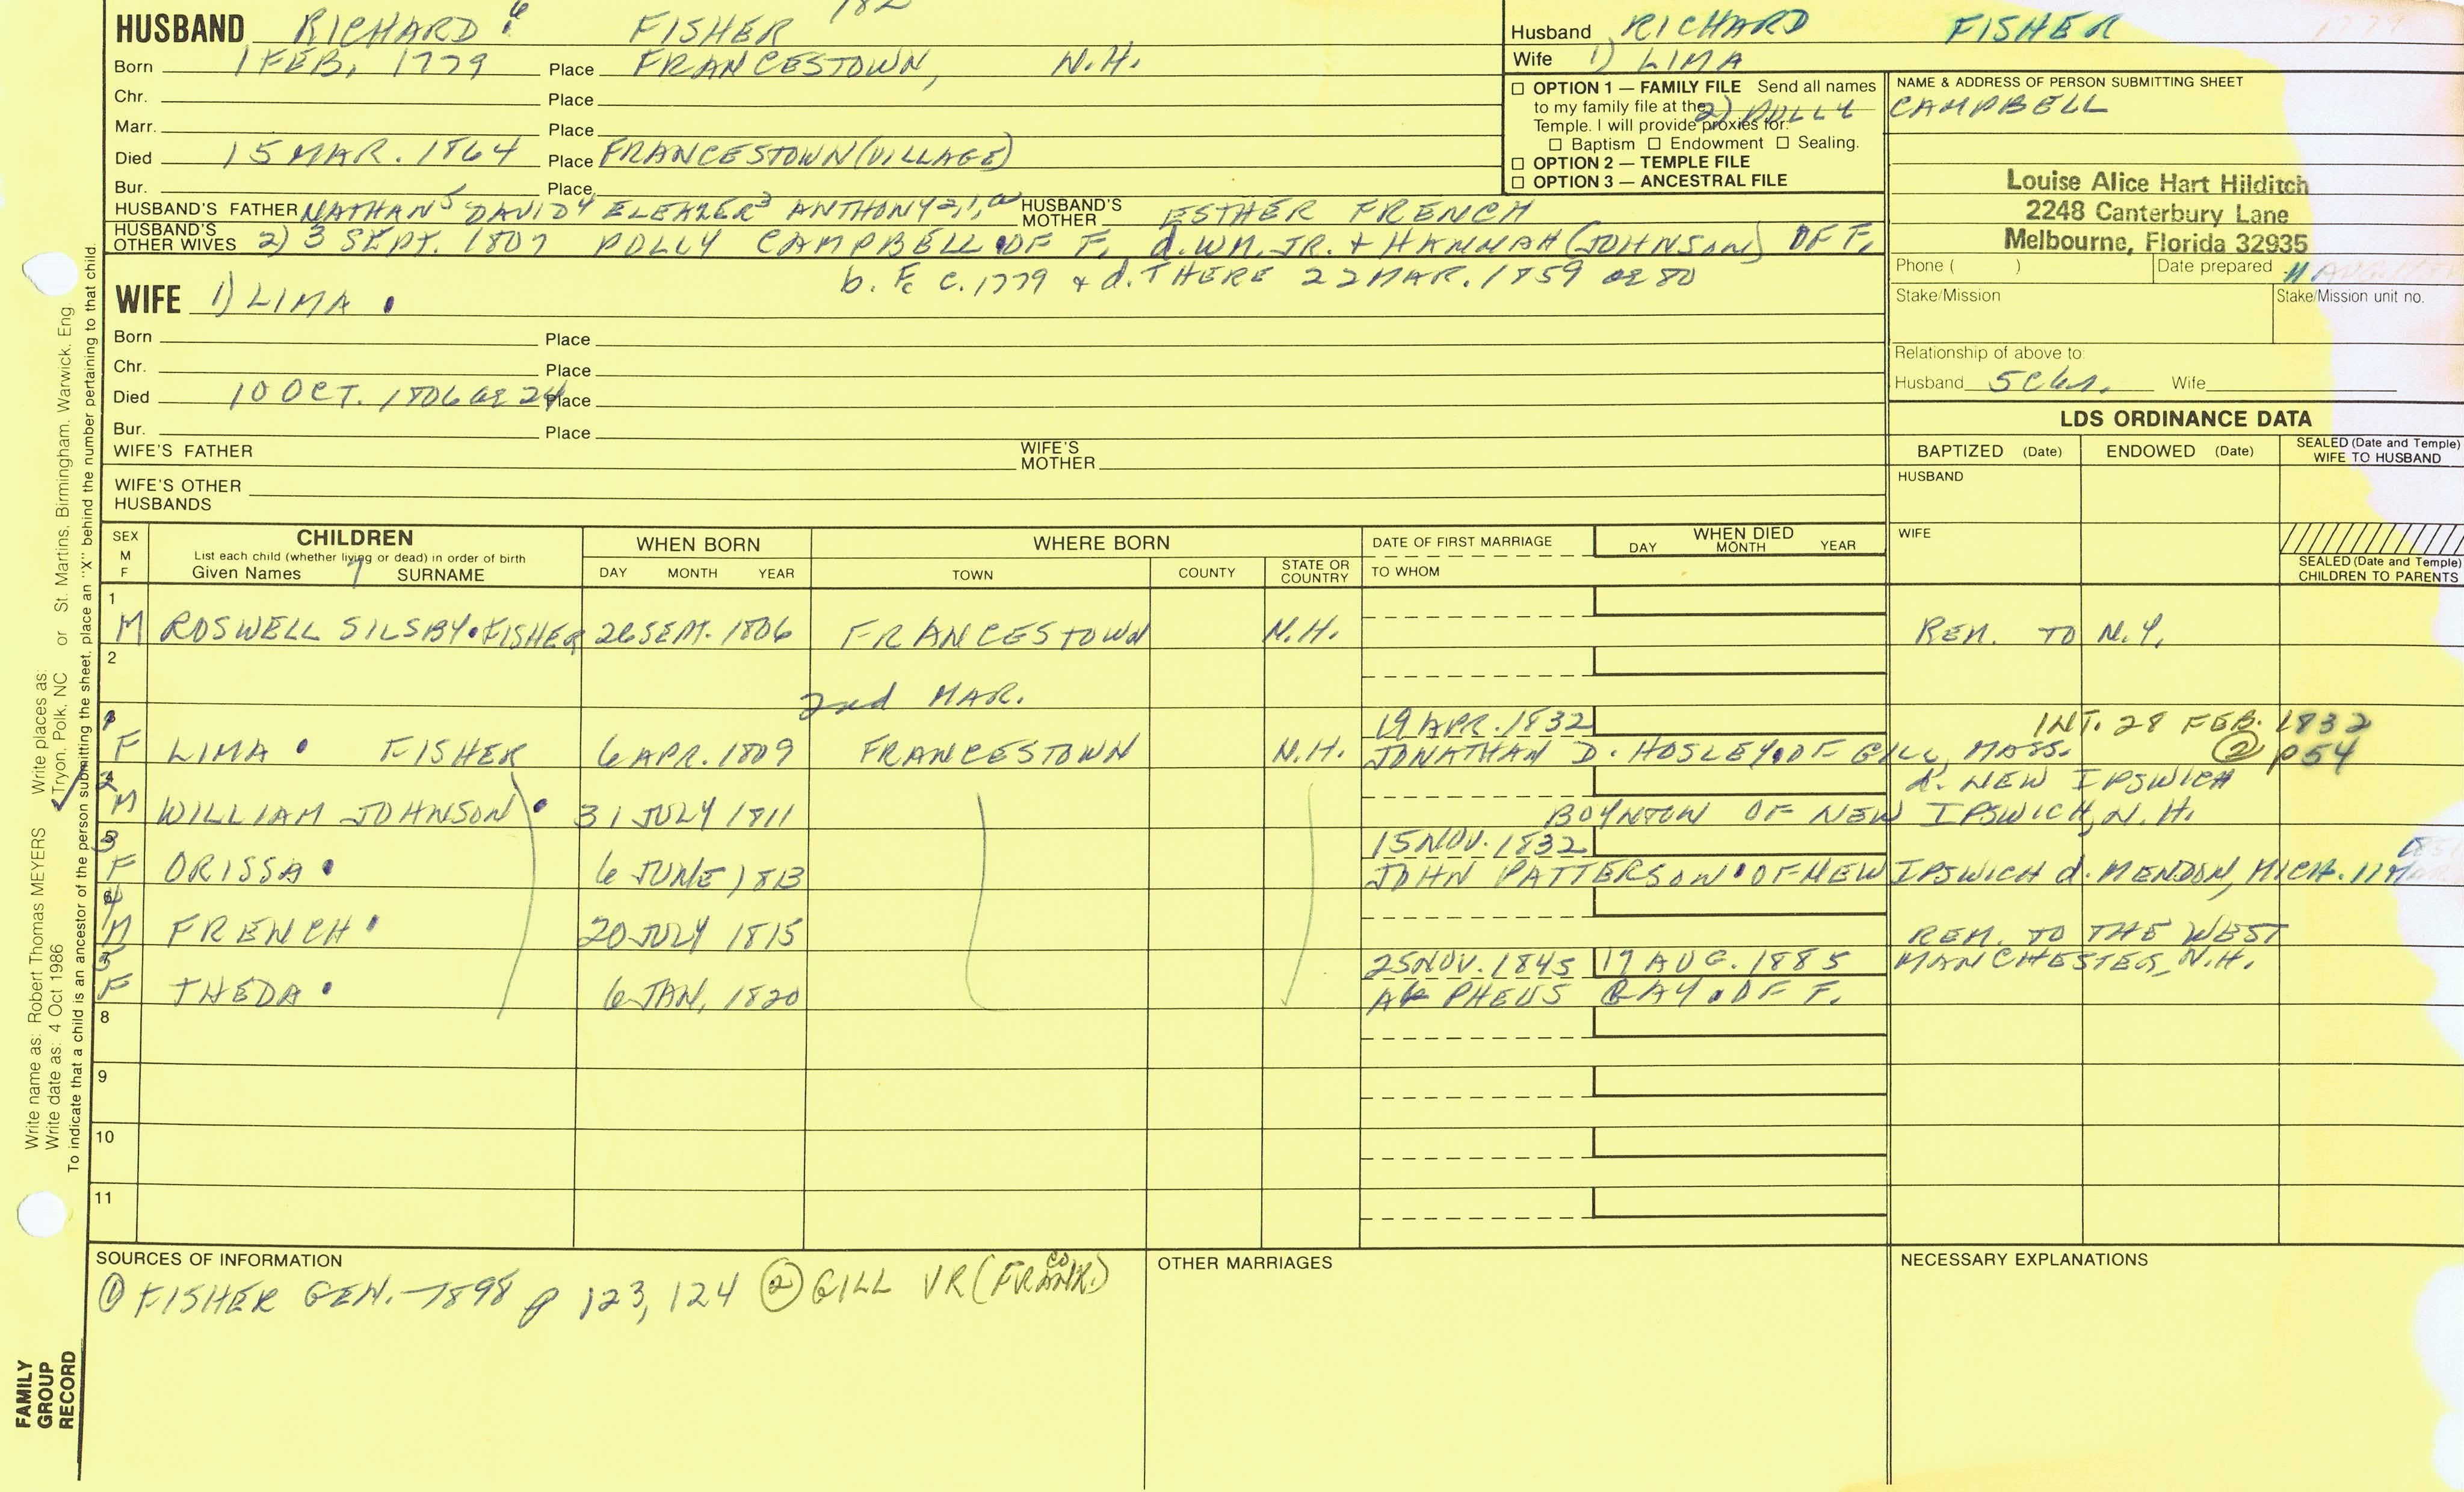 HUSBAND RICHARD 6 FISHER
Born 1 FEB. 1779 Place FRANCESTOWN, N.H.
Chr. Place
Marr. Place
Died 15 MAR. 1864 Place FRANCESTOWN (VILLAGE)
Bur. Place
HUSBAND'S FATHER NATHAN5 DAVID4 ELEAZER3 ANTHONY2,1, HUSBAND'S MOTHER ESTHER FRENCH
HUSBAND'S OTHER WIVES 2) 3 SEPT. 1807 POLLY CAMPBELL OF F. d. WM. JR. + HANNAH (JOHNSON) OF F.
b. F. c. 1779 + d. THERE 22 MAR. 1859 ae 80
WIFE 1) LIMA
Born Place
Chr. Place
Died 10 OCT. 1806 ae 24 Place
Bur. Place
WIFE'S FATHER WIFE'S MOTHER
WIFE'S OTHER HUSBANDS
Husband RICHARD FISHER 1779
Wife 1) LIMA
☐ OPTION 1 — FAMILY FILE Send all names
to my family file at the 2) POLLY CAMPBELL
Temple. I will provide proxies for:
☐ Baptism ☐ Endowment ☐ Sealing.
☐ OPTION 2 — TEMPLE FILE
☐ OPTION 3 — ANCESTRAL FILE
NAME & ADDRESS OF PERSON SUBMITTING SHEET
Louise Alice Hart Hilditch
2248 Canterbury Lane
Melbourne, Florida 32935
Phone ( ) Date prepared 11
Stake/Mission Stake/Mission unit no.
Relationship of above to:
Husband Wife
LDS ORDINANCE DATA
BAPTIZED (Date) ENDOWED (Date) SEALED (Date and Temple) WIFE TO HUSBAND
HUSBAND
WIFE
SEALED (Date and Temple) CHILDREN TO PARENTS
SEX M F CHILDREN
List each child (whether living or dead) in order of birth
Given Names 7 SURNAME
WHEN BORN DAY MONTH YEAR
WHERE BORN TOWN COUNTY STATE OR COUNTRY
DATE OF FIRST MARRIAGE TO WHOM
WHEN DIED DAY MONTH YEAR
1
M ROSWELL SILSBY FISHER 26 SEPT. 1806 FRANCESTOWN N.H. REM. TO N.Y.
2
2nd MAR.
1 19 APR. 1832 INT. 28 FEB. 1832
F LIMA FISHER 6 APR. 1809 FRANCESTOWN N.H. JONATHAN D. HOSLEY OF GILL, MASS. ② p54
2 d. NEW IPSWICH
M WILLIAM JOHNSON 31 JULY 1811 BOYNTON OF NEW IPSWICH, N.H.
3 15 NOV. 1832
F ORISSA 6 JUNE 1813 JOHN PATTERSON OF NEW IPSWICH d. MENDON, MICH. 11
4
M FRENCH 20 JULY 1815 REM. TO THE WEST
5 25 NOV. 1845 17 AUG. 1885 MANCHESTER, N.H.
F THEDA 6 JAN. 1820 ALPHEUS GAY OF F.
8
9
10
11
SOURCES OF INFORMATION
① FISHER GEN. - 1898 p 123, 124 ② GILL VR (FRANK. CO.)
OTHER MARRIAGES
NECESSARY EXPLANATIONS
Write name as: Robert Thomas MEYERS Write places as:
Write date as: 4 Oct 1986 Tryon, Polk, NC or St. Martins, Birmingham, Warwick, Eng
To indicate that a child is an ancestor of the person submitting the sheet, place an "X" behind the number pertaining to that child.
FAMILY
GROUP
RECORD